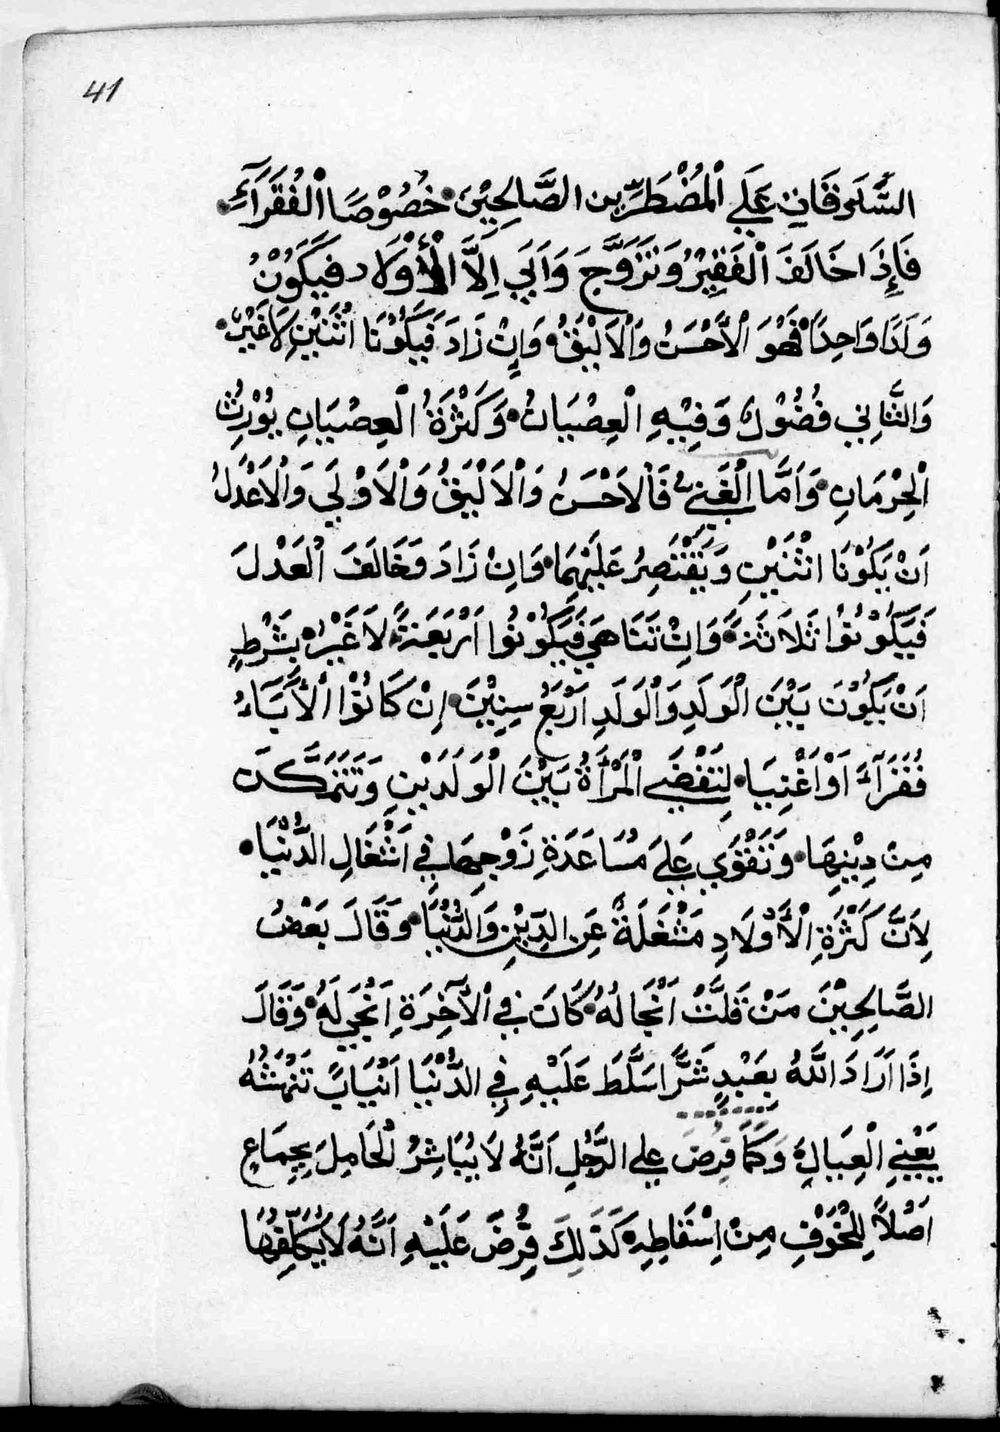 41
السَّرَقَاتِ عَلَي الْمُضْطَرِّينَ الصَّالِحِيْنَ خُصُوْصًا الْفُقَرَآءِ
فَإِذَا خَالَفَ الْفَقِيْرُ وَتَزَوَّجَ وَاَبَي اِلَّا الْأَوْلَادَ فَيَكُوْنُ
وَلَدًا وَاحِدًا فَهُوَ الْاَحْسَنُ وَالْاَلْيَقُ وَاِنْ زَادَ فَيَكُوْنَا اثْنَيْنِ لَاغَيْرُ
وَالثَّانِي فُضُوْلٌ وَفِيْهِ الْعِصْيَانُ وَكَثْرَةُ الْعِصْيَانِ يُوْرِثُ
الْحِرْمَانِ وَاَمَّا الْغَنِيُّ فَالْاَحْسَنُ وَالْاَلْيَقُ وَالْاَوْلَي وَالْاَعْدَلُ
اَنْ يَكُوْنَا اثْنَيْنِ وَيَقْتَصِرُ عَلَيْهِمَا وَاِنْ زَادَ وَخَالَفَ الْعَدْلَ
فَيَكُوْنُوْا ثَلَاثَةً وَاِنْ تَنَاهَي فَيَكُوْنُوا اَرْبَعَةً لَاغَيْرُ بِشَرْطِ
اَنْ يَكُوْنَ بَيْنَ الْوَلَدِ وَالْوَلَدِ اَرْبَعُ سِنِيْنَ اِنْ كَانُوْا الْأَبَاءُ
فُقَرَآءَ اَوْ اَغْنِيَا لِتَقْضَي الْمَرْأَةُ بَيْنَ الْوَلَدَيْنِ وَتَتَمَكَّنَ
مِنْ دِيْنِهَا وَتَقْوَي عَلَي مُسَاعَدَةِ زَوْجِهَا فِي اَشْغَالِ الدُّنْيَا
لِاَنَّ كَثْرَةِ الْأَوْلَادِ مَشْغَلَةٌ عَنِ الدِّيْنِ وَالدُّنْيَا وَقَالَ بَعْضُ
الصَّالِحِيْنَ مَنْ قَلَّتْ اَنْجَالُهُ كَانَ فِي الْاٰخِرَةِ اَنْجَي لَهُ وَقَالَ
اِذَا اَرَادَ اللّٰهُ بِعَبْدٍ شَرًّا سَلَّطَ عَلَيْهِ فِي الدُّنْيَا اَنْيَابً تَنْهَشُهُ
يَعْنِي الْعِيَالَ وَكَمَا فُرِضَ عَلَي الرَّجُلِ اَنَّهُ لَا يُبَاشِرُ الْحَامِلَ بِجِمَاعٍ
اَصْلًا لِلْخَوْفِ مِنْ اِسْقَاطِهِ كَذَلِكَ فُرِضَ عَلَيْهِ اَنَّهُ لَا يُكَلِّفُهَا